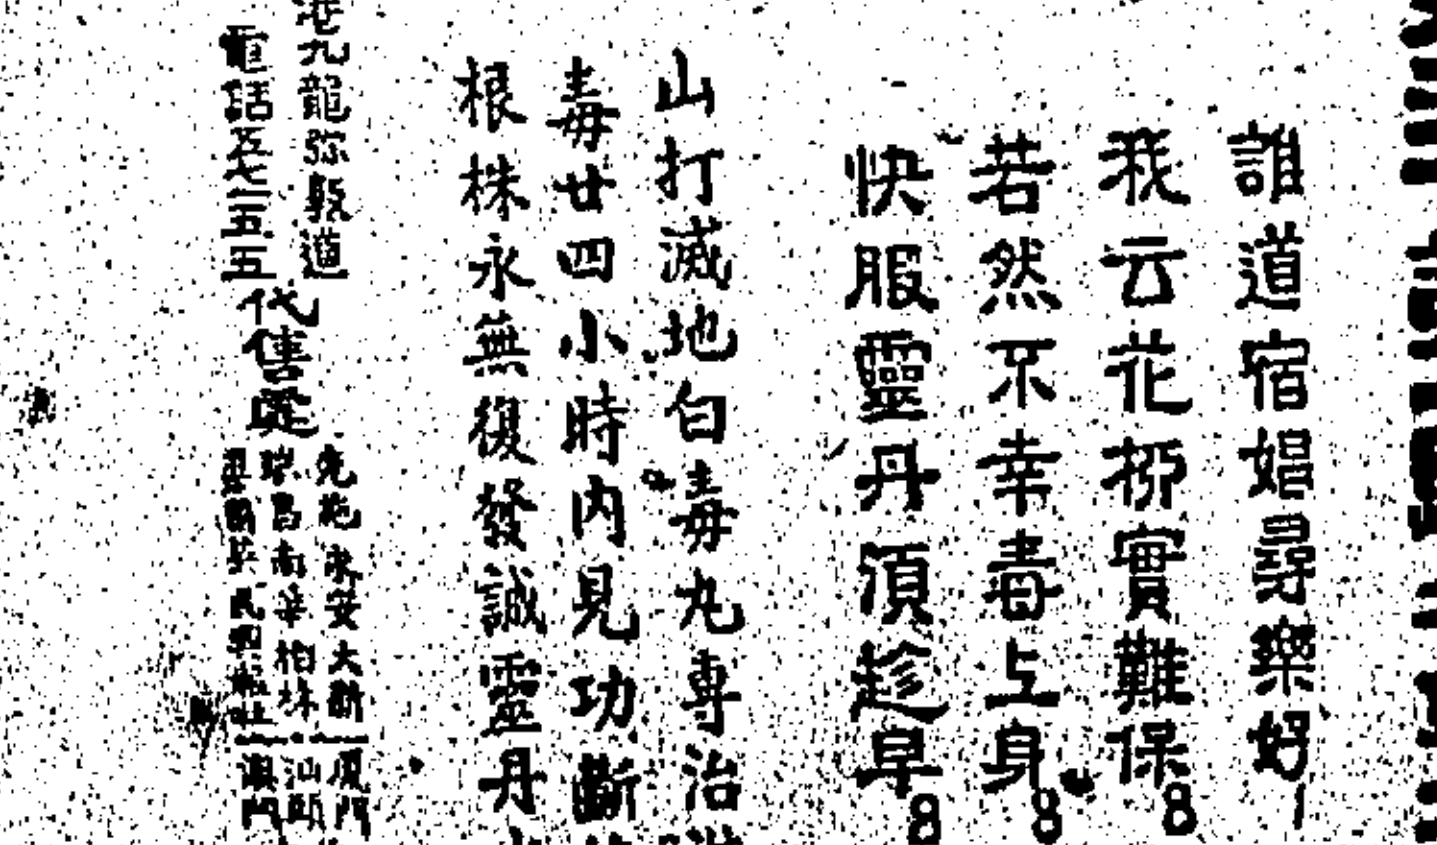 誰道宿娼尋樂好
我云花柳實難保
若然不幸毒上身
快服靈丹須趁早
山打滅地白毒丸専治
毒廿四小時內見功斷
根株永無復發誠靈丹
港九龍弥敦道
電話五七二五五
代售處
先施永安大新
瑞昌南華柏林
厦門
汕頭
澳門